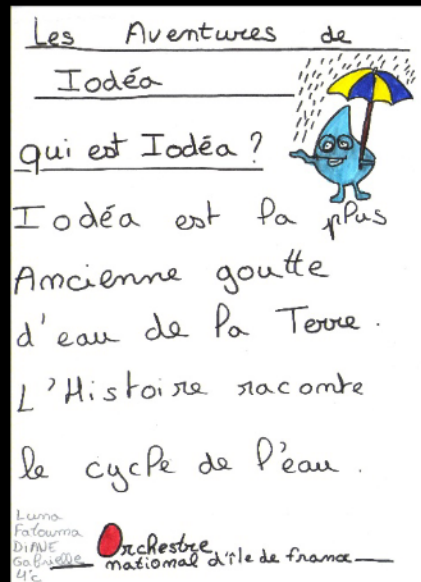 Les Aventures de
Iodéa
qui est Iodéa ?
Iodéa est la plus
Ancienne goutte
d'eau de la Terre.
L'Histoire raconte
le cycle de l'eau.
Luna
Fatouma
DiANE
Gabrielle
4°c
Orchestre
national d'île de france